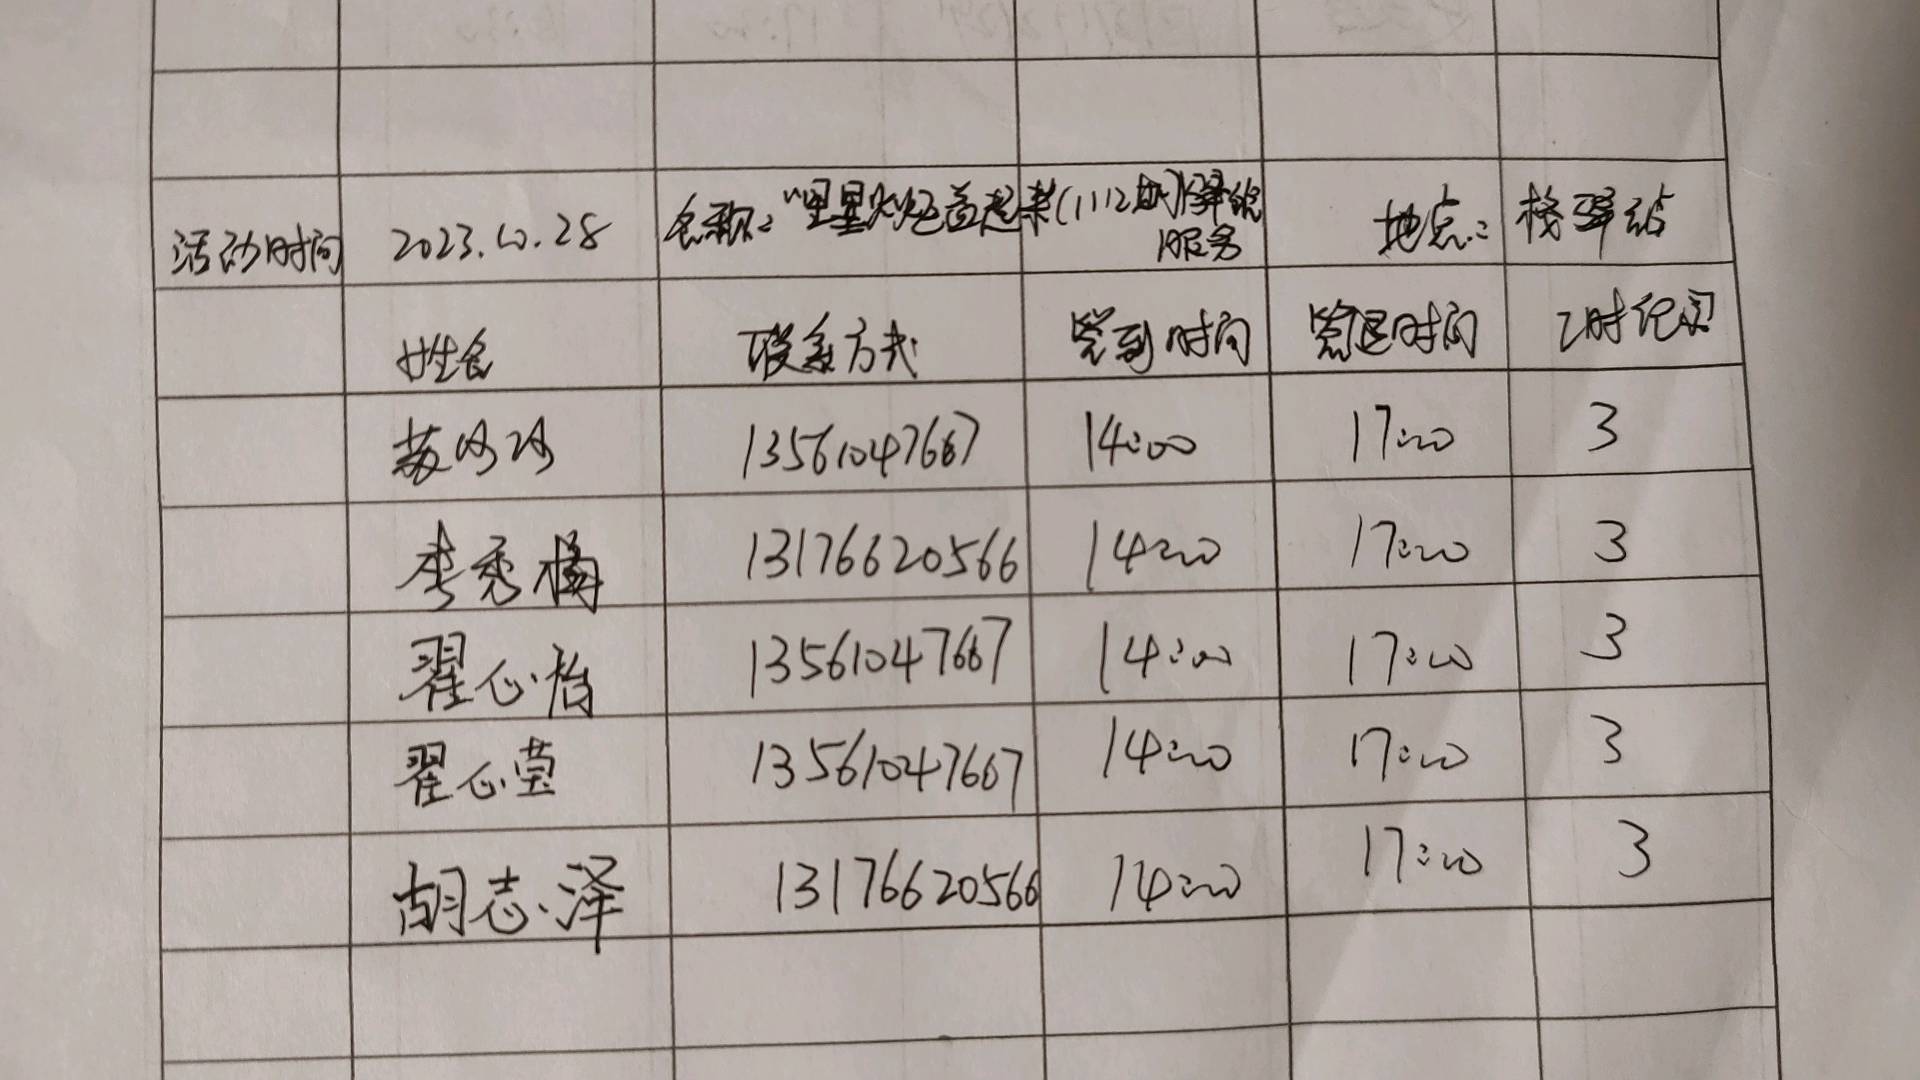 活动时间 2023.10.28 名称:"星星火炬益起来(1112期)驿站服务 地点: 桥驿站
姓名 联系方式 签到时间 签退时间 工时记录
苏沙沙 13561047667 14:00 17:00 3
李秀梅 13176620566 14:00 17:00 3
翟心怡 13561047667 14:00 17:00 3
翟心莹 13561047667 14:00 17:00 3
胡志泽 13176620566 14:00 17:00 3